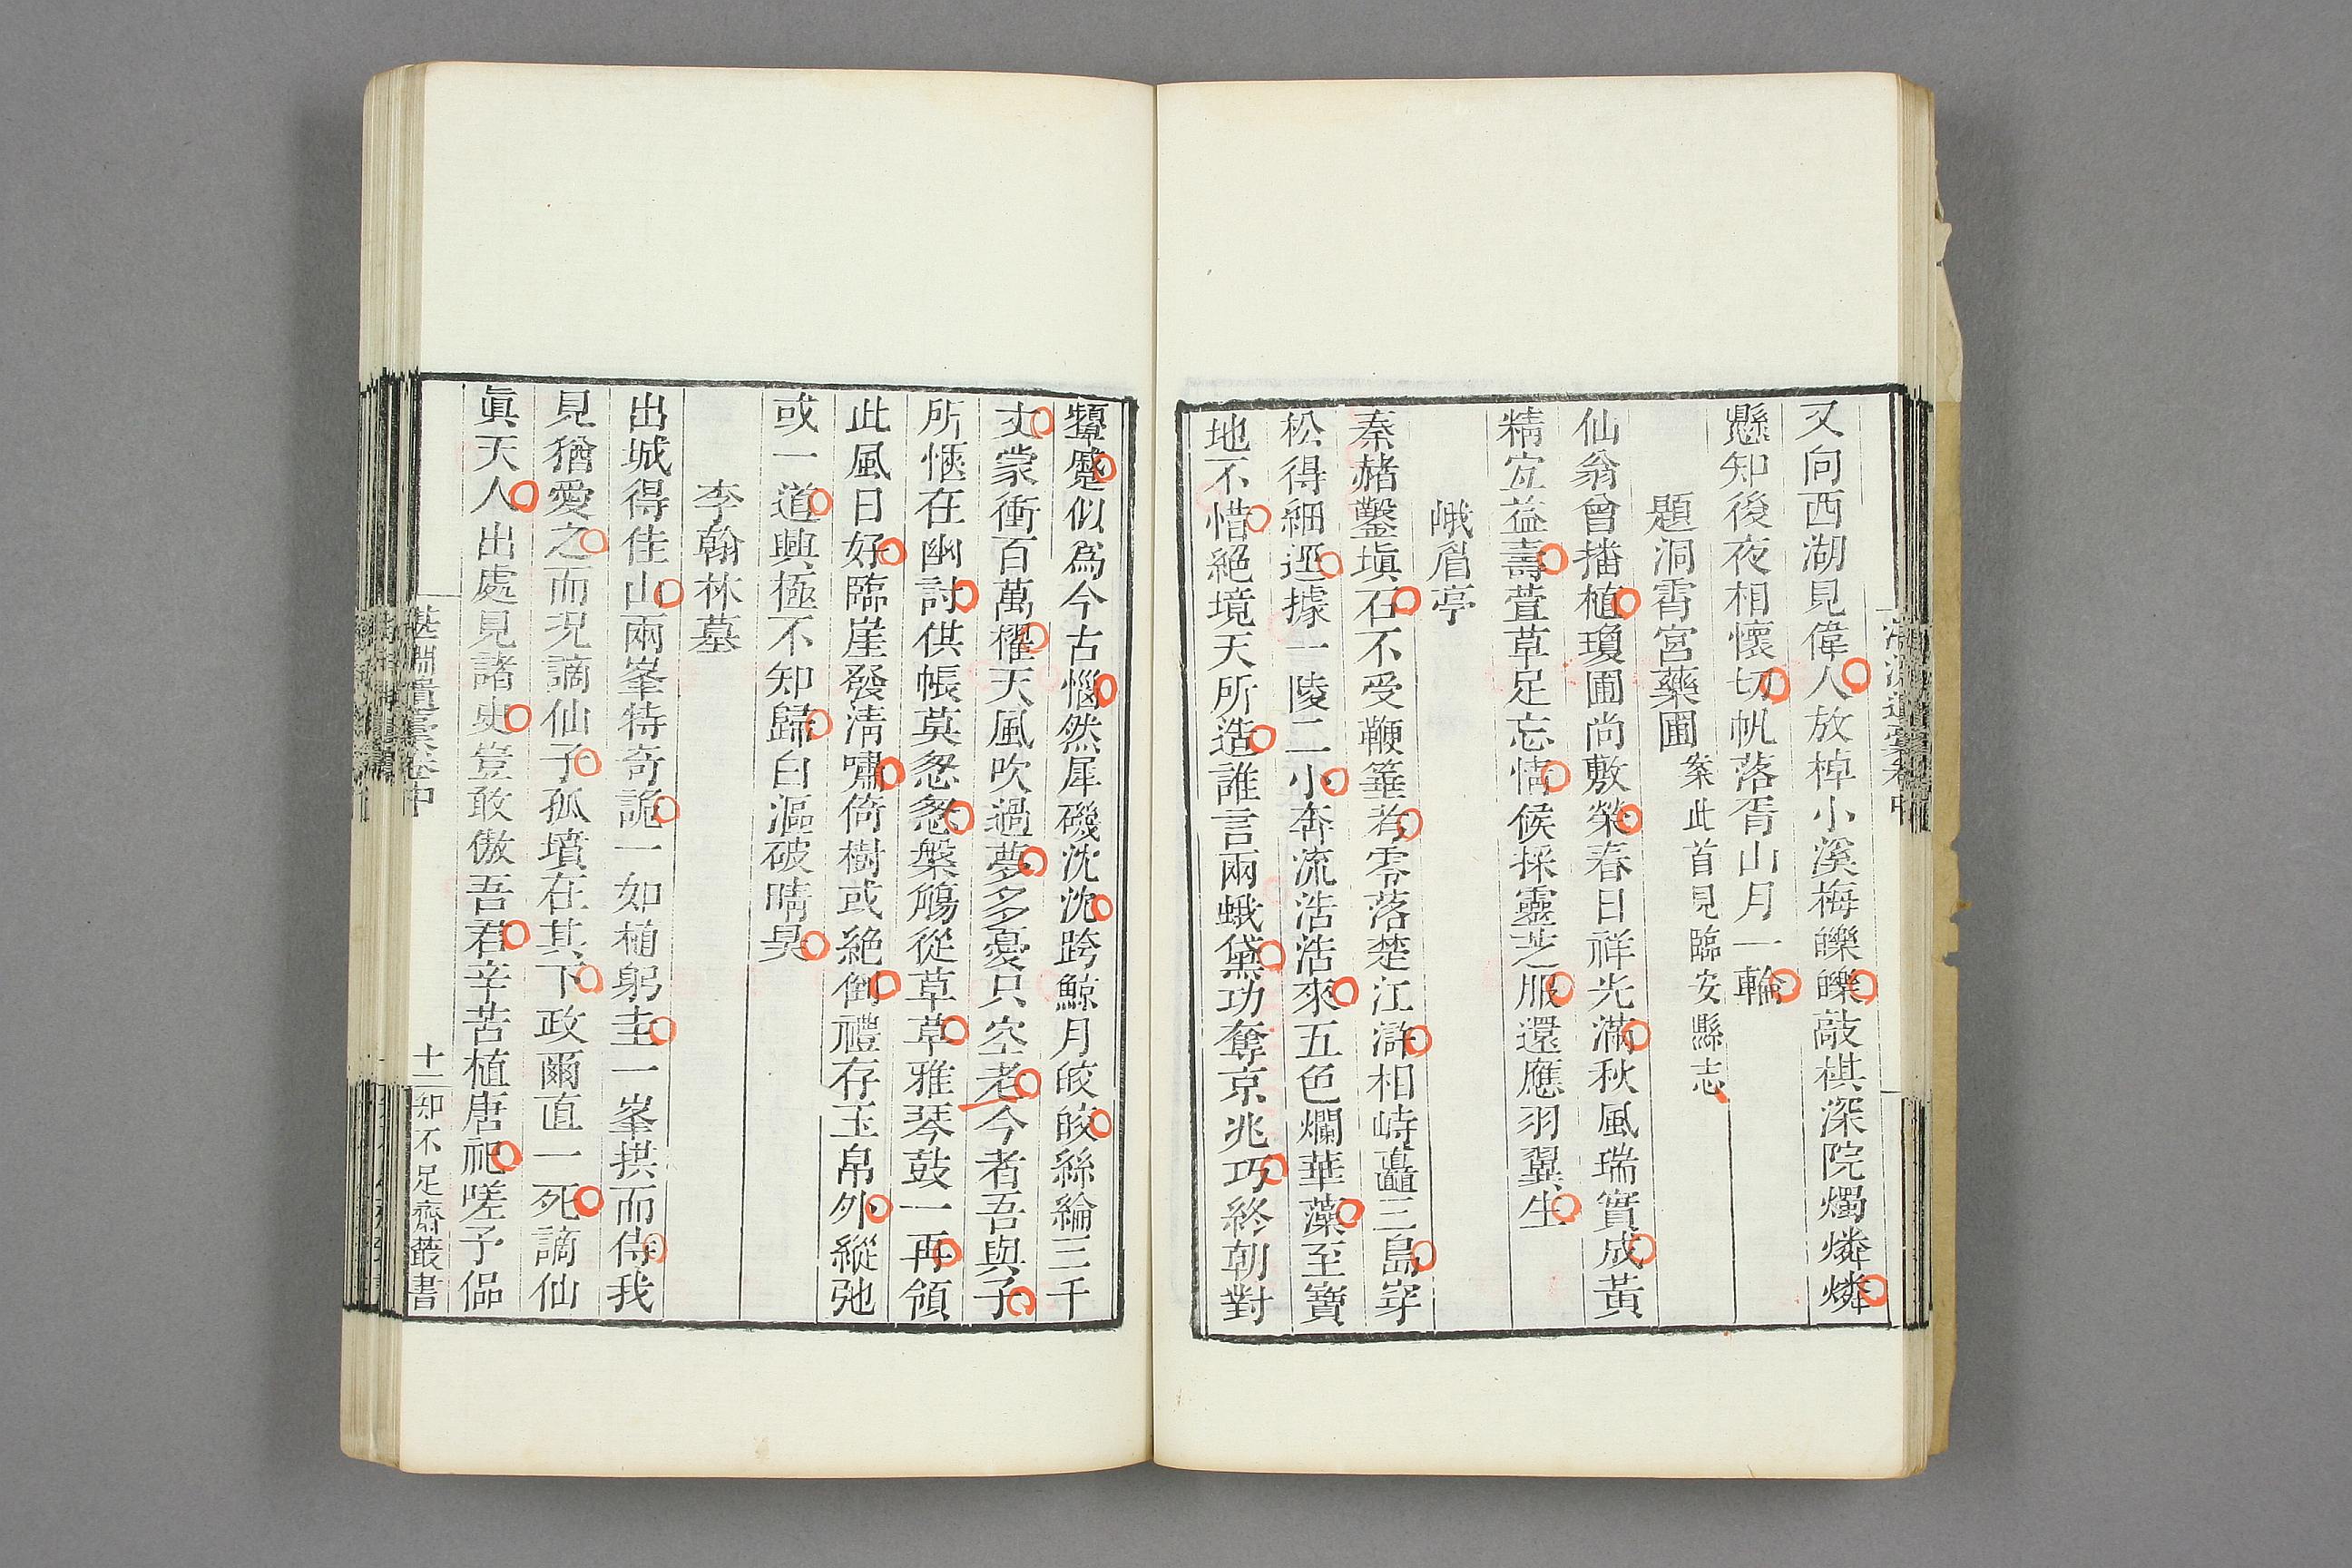 又向西湖見偉人放棹小溪梅皪皪敲棋深院燭燐燐
懸知後夜相懷切帆落胥山月一輪
題洞霄宮藥圃案此首見臨安縣志
仙翁曾播植瓊圃尚敷榮春日祥光滿秋風瑞實成黃
精宜益壽萱草足忘情候採靈芝服還應羽翼生
峨眉亭
秦赭鑿塡石不受鞭箠若零落楚江滸相峙矗三島穿
松得細逕據一陵二小奔流浩浩來五色爛華藻至寶
地不惜絕境天所造誰言兩蛾黛功奪京兆巧終朝對
顰蹙似為今古惱然犀磯沈沈跨鯨月皎皎絲綸三千
丈蒙衝百萬櫂天風吹過夢多多憂只空老今者吾與子
所愜在幽討供帳莫怱怱槃觴從草草雅琴鼓一再領
此風日好臨崖發淸嘯倚樹或絕倒禮存玉帛外縱弛
或一道興極不知歸白漚破晴昊
李翰林墓
出城得佳山兩峯特奇詭一如植躬圭一峯拱而侍我
見猶愛之而況謫仙子孤墳在其下政爾直一死謫仙
眞天人出處見諸史豈敢傲吾君辛苦植唐祀嗟予侷
湛淵遺稾卷中
十二 知不足齋叢書